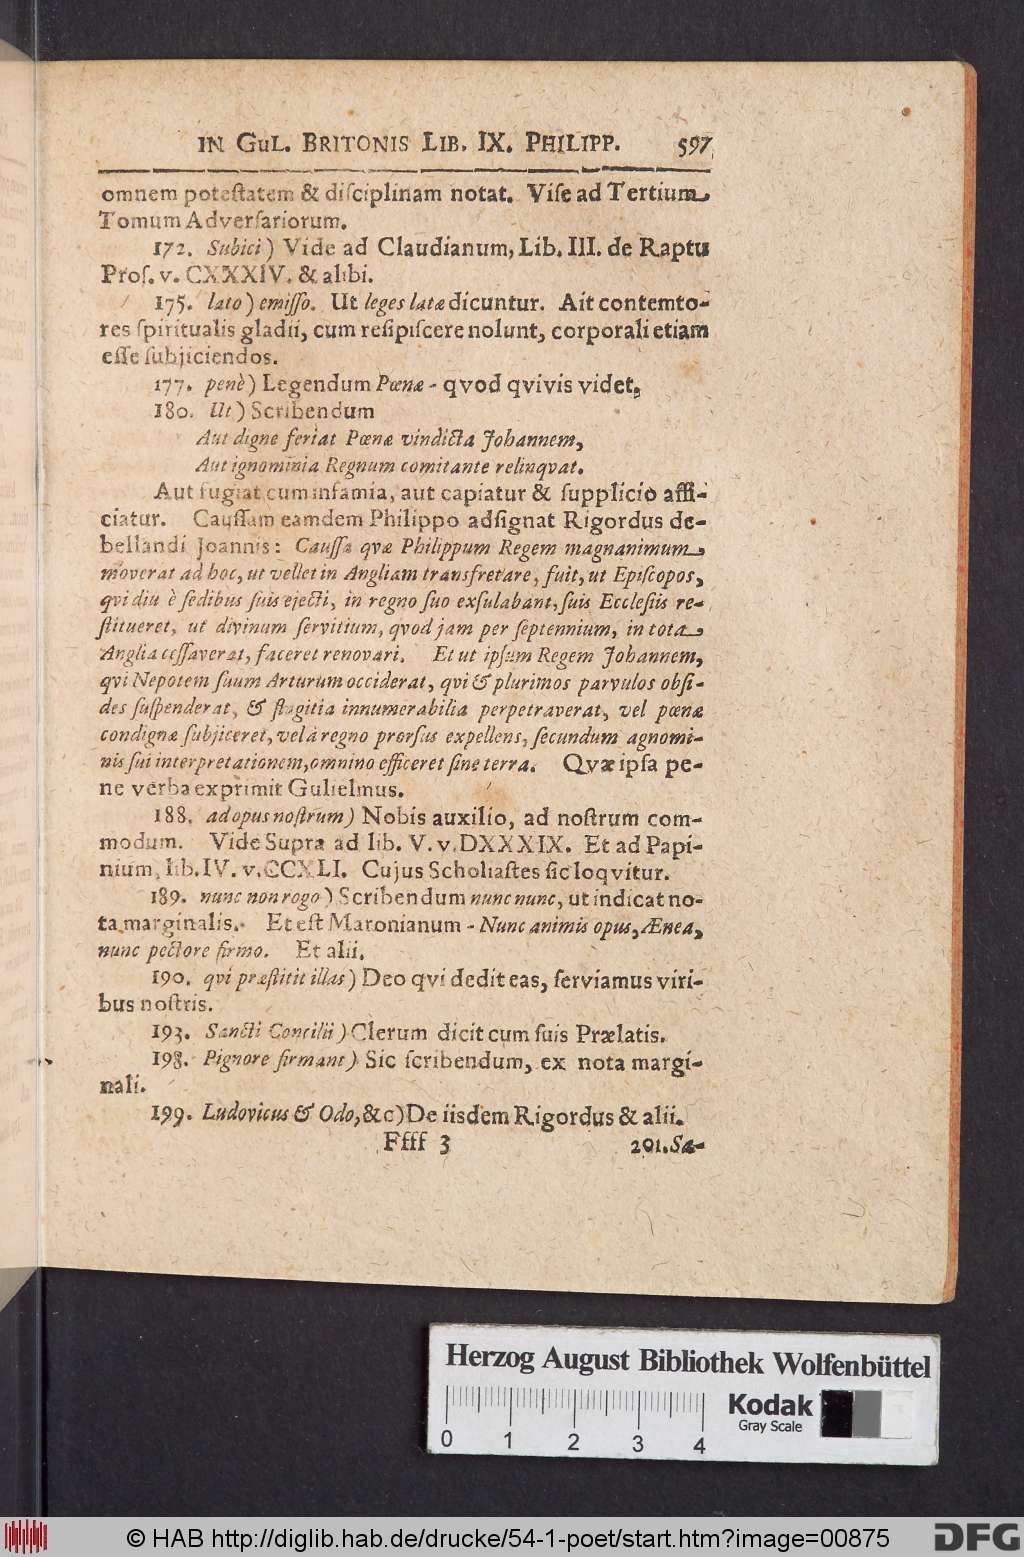 IN GUL. BRITONIS LIB. IX. PHILIPP. 597
omnem potestatem & disciplinam notat. Vise ad Tertium
Tomum Adversariorum.
172. Subici) Vide ad Claudianum, Lib. III. de Raptu
Pros. v. CXXXIV. & alibi.
175. lato) emisso. Ut leges latæ dicuntur. Ait contemto-
res spiritualis gladii, cum resipiscere nolunt, corporali etiam
esse subjiciendos.
177. penè) Legendum Pœnæ - qvod qvivis videt.
180. Ut) Scribendum
Aut digne feriat Pœnæ vindicta Johannem,
Aut ignominia Regnum comitante relinqvat.
Aut fugiat cum infamia, aut capiatur & supplicio affi-
ciatur. Caussam eamdem Philippo adsignat Rigordus de-
bellandi Joannis: Caussa qvæ Philippum Regem magnanimum
moverat ad hoc, ut vellet in Angliam transfretare, fuit, ut Episcopos,
qvi diu è sedibus suis ejecti, in regno suo exsulabant, suis Ecclesiis re-
stitueret, ut divinum servitium, qvod jam per septennium, in tota
Anglia cessaverat, faceret renovari. Et ut ipsum Regem Johannem,
qvi Nepotem suum Arturum occiderat, qvi & plurimos parvulos obsi-
des suspenderat, & flagitia innumerabilia perpetraverat, vel pœnæ
condignæ subjiceret, vel à regno prorsus expellens, secundum agnomi-
nis sui interpretationem, omnino efficeret sine terra. Qvæ ipsa pe-
ne verba exprimit Gulielmus.
188. ad opus nostrum) Nobis auxilio, ad nostrum com-
modum. Vide Supra ad lib. V. v. DXXXIX. Et ad Papi-
nium, lib. IV. v. CCXLI. Cujus Scholiastes sic loqvitur.
189. nunc non rogo) Scribendum nunc nunc, ut indicat no-
ta marginalis. Et est Maronianum - Nunc animis opus, Ænea,
nunc pectore firmo. Et alii.
190. qvi præstitit illas) Deo qvi dedit eas, serviamus viri-
bus nostris.
193. Sancti Concilii) Clerum dicit cum suis Prælatis.
198. Pignore firmant) Sic scribendum, ex nota margi-
nali.
199. Ludovicus & Odo, &c) De iisdem Rigordus & alii.
Ffff 3 201. Sæ-
Herzog August Bibliothek Wolfenbüttel
Kodak
Gray Scale
0 1 2 3 4
© HAB http://diglib.hab.de/drucke/54-1-poet/start.htm?image=00875
DFG